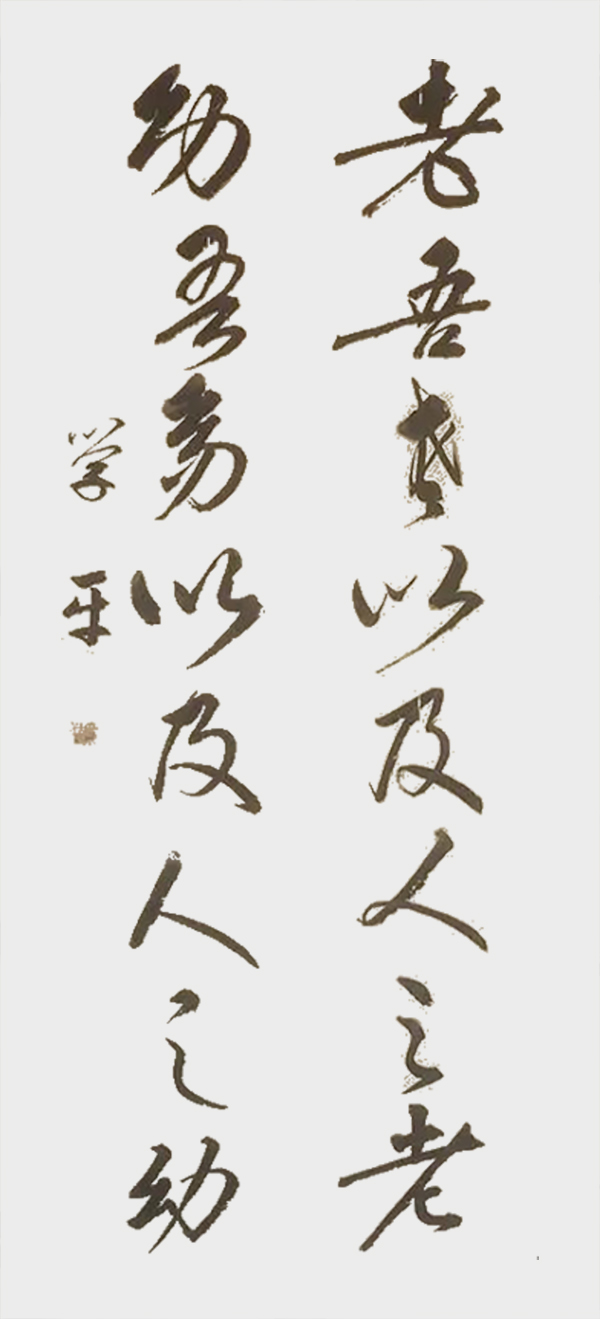 老吾老以及人之老
幼吾幼以及人之幼
学平